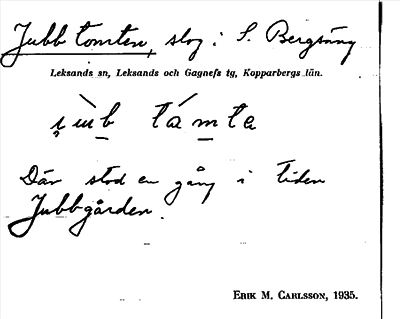 Jubb tomten, slog i S. Bergsäng
Leksands sn, Leksands och Gagnefs tg, Kopparbergs län.
Där stod en gång i tiden
Jubbgården.
ERIK M. CARLSSON, 1935.